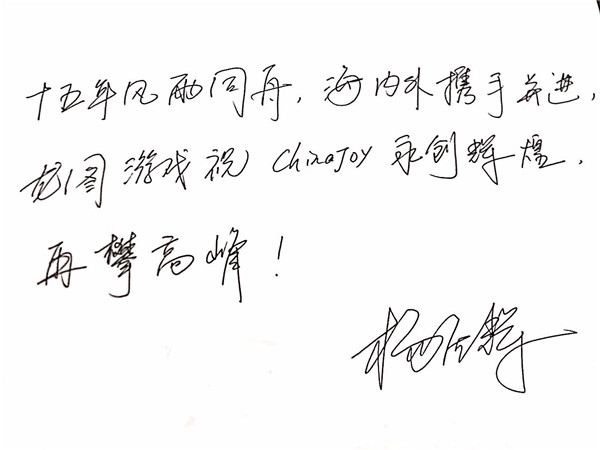 十五年风雨同舟，海内外携手并进，
龙图游戏祝 ChinaJoy 永创辉煌，
再攀高峰！